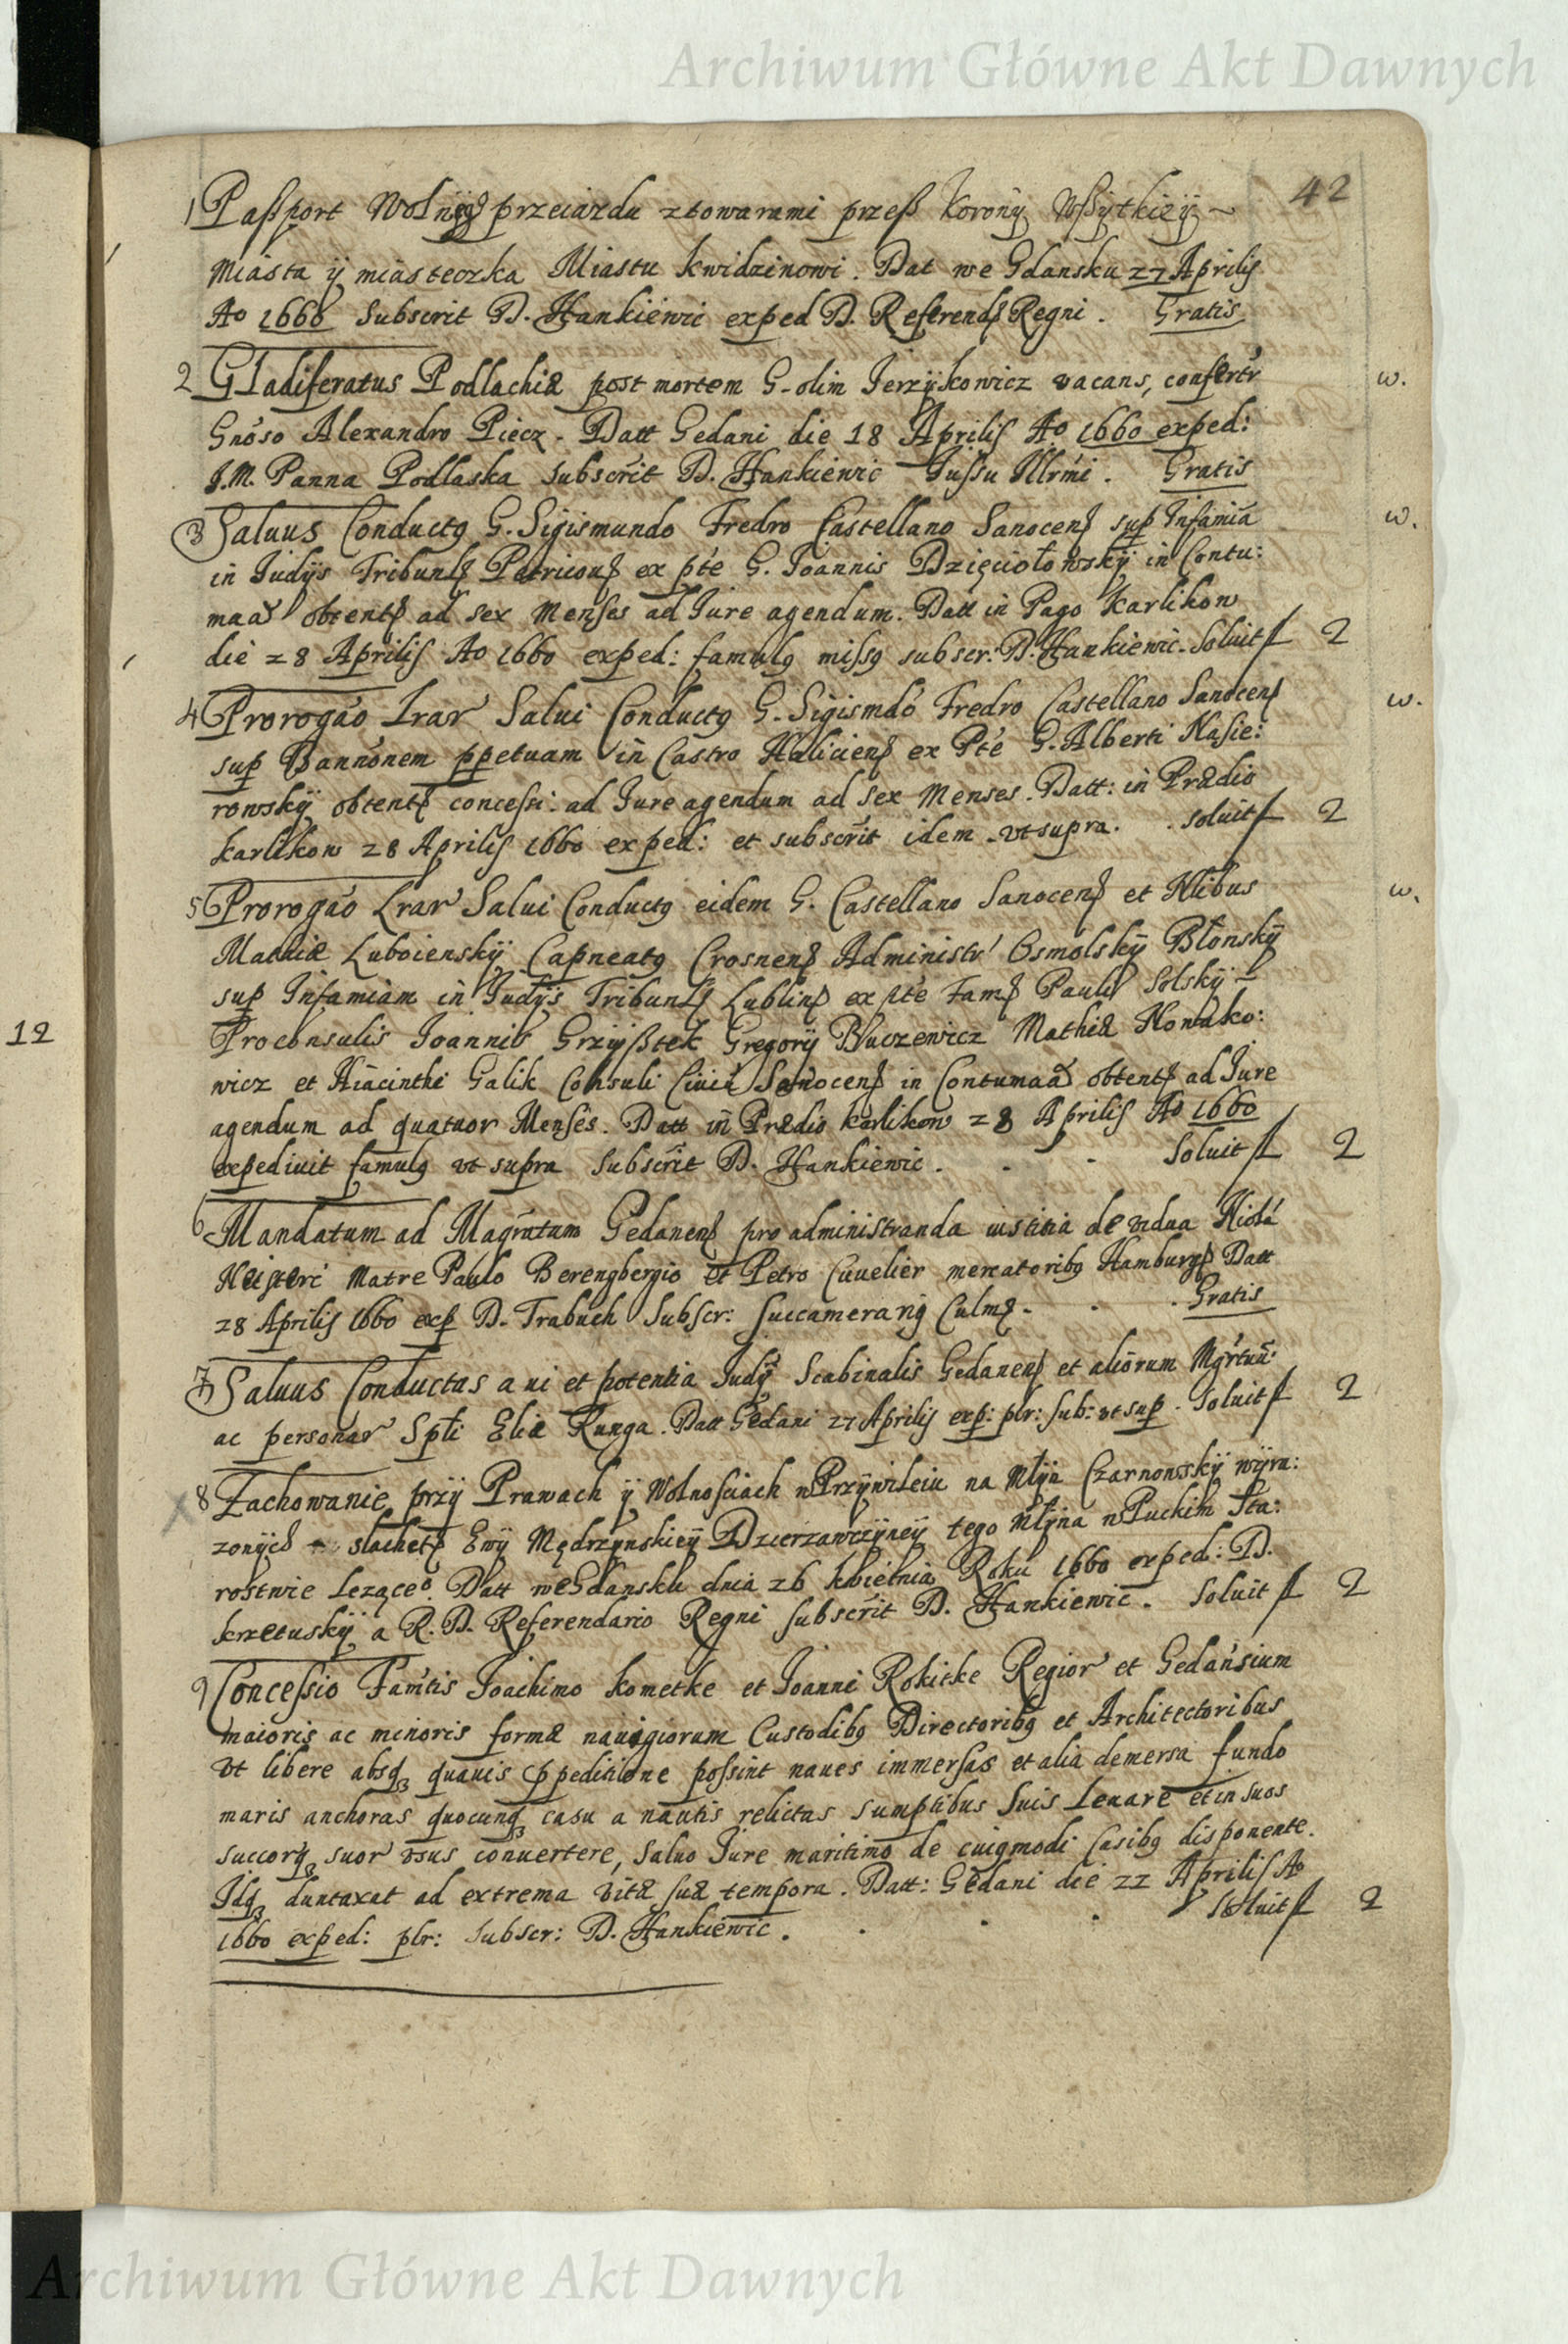 Archiwum Główne Akt Dawnych
42
1 Paßport Wolneg przeiazdu z towarami przeß Korony Wßytkieÿ
Miásta ÿ miásteczka Miastu Kwidzinowi. Dat we Gdansku 27 Aprilis
Ao 1660 Subscrit D. Hankiewic exped D. Referend Regni. Gratis
2 Gladiferatus Podlachiæ post mortem G. olim Jerzÿkowicz vacans, confertr w.
Gnoso Alexandro Piecz. Datt Gedani die 18 Aprilis Ao 1660 exped:
J.M. Panna Podlaska subscrit D. Hankiewic Jussu Illrmi. Gratis
3 Saluus Conductq G. Sigismundo Fredro Castellano Sanocen sup Infamia w.
in Judijs Tribunls Petricoun ex pte G. Joannis Dzięciołowskÿ in Contu:
maa obtent ad sex Menses ad Jure agendum. Datt in Pago Karlikow
die 28 Aprilis Ao 1660 exped: famulq missq subscr: D. Hankiewic. Soluit f 2
4 Prorogao Lrar Salui Conductq G. Sigismdo Fredro Castellano Sanocen w.
sup Bannonem ppetuam in Castro Halicien ex Pte G. Alberti Nasie:
rowskÿ obtent concessi: ad Jure agendum ad sex Menses. Datt: in Prædio
Karlikow 28 Aprilis 1660 exped: et subscrit idem vt supra. soluit f 2
5 Prorogao Lrar Salui Conductq eidem G. Castellano Sanocen et Nlibus w.
Mathiæ Luboienskÿ Capneatq Crosnen Administr Osmolskÿ Błonskÿ
sup Infamiam in Judijs Tribunls Lublin ex pte Fam Pauli Solskÿ
12
Proconsulis Joannis Grzÿßtek Gregorÿ Buczewicz Mathiæ Nowako:
wicz et Hiacinthi Galik Consuli Ciuiu Sanocen in Contumaa obtent ad Jure
agendum ad quatuor Menses. Datt in Prædio Karlikow 28 Aprilis Ao 1660
expediuit famulq vt supra Subscrit D. Hankiewic. Soluit f 2
6 Mandatum ad Magratum Gedanen pro administranda iustitia de vidua
Matre Paulo Berengbergio et Petro Cuuelier mercatoribq Hamburg Datt
28 Aprilis 1660 exp D. Trabuch Subscr: Succamerariq Culm. Gratis
7 Saluus Conductus a ui et potentia Judÿ Scabinalis Gedanen et aliorum Mgrtuu:
ac personar Spti Eliæ Runga. Datt Gedani 27 Aprilis exp: plr: sub: vt sup. Soluit f 2
8 Zachowanie przÿ Prawach ÿ Wolnosciach w Przÿwileiu na Młÿn Czarnowskÿ wÿra:
zonÿch slachet Ewÿ Mędrzynskieÿ Dzierzawczÿneÿ tego Młÿna w Puckim Sta:
rostwie lezące. Datt we Gdansku dnia 26 kwietnia Roku 1660 exped: D.
Krzetuskÿ a R. D. Referendario Regni subscrit D. Hankiewic. Soluit f 2
9 Concessio Famtis Joachimo Kometke et Joanni Rokitke Regior et Gedansium
maioris ac minoris formæ nauigiorum Custodibq Directoribq et Architectoribus
Vt libere absq quauis ppeditione possint naues immersas et alia demersa fundo
maris anchoras quocunq casu a nautis relictas sumptibus suis Leuare et in suos
succorq suor vsus conuertere, Saluo Jure maritimo de euigmodi Casibq disponente.
Idq duntaxat ad extrema vitæ suæ tempora. Datt: Gedani die 22 Aprilis Ao
1660 exped: plr: Subscr: D. Hankiewic. Soluit f 2
Archiwum Główne Akt Dawnych